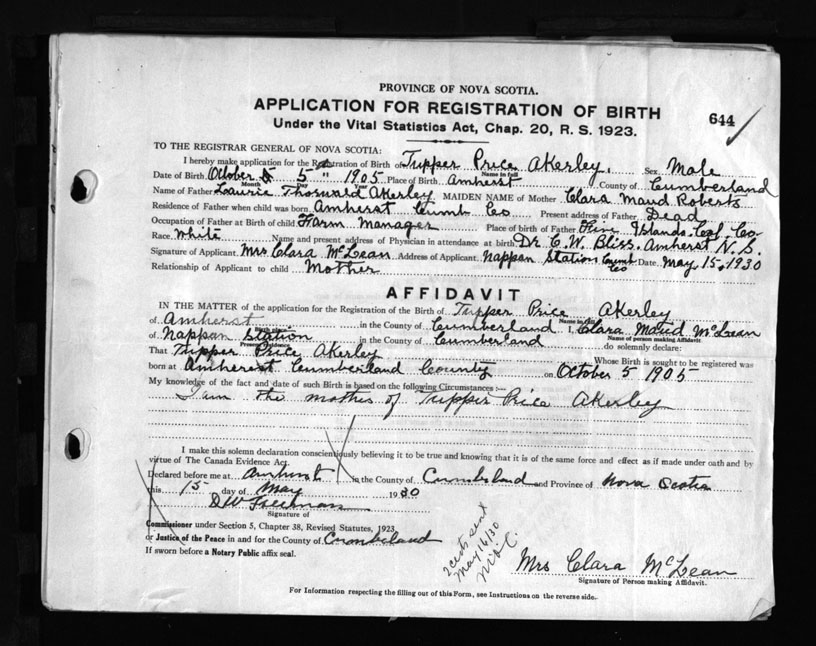 PROVINCE OF NOVA SCOTIA.
APPLICATION FOR REGISTRATION OF BIRTH
644
Under the Vital Statistics Act, Chap. 20, R. S. 1923.
TO THE REGISTRAR GENERAL OF NOVA SCOTIA:
I hereby make application for the Registration of Birth of Tupper Price Akerley. Sex Male
Name in full
Date of Birth October 5" 1905 Place of Birth Amherst County of Cumberland
Month Day Year
Name of Father Laurie Thorswald Akerley MAIDEN NAME of Mother Clara Maud Roberts
Residence of Father when child was born Amherst Cumb Co Present address of Father Dead
Occupation of Father at Birth of child Farm Manager Place of birth of Father Five Islands Col. Co
Race White Name and present address of Physician in attendance at birth Dr. C. W. Bliss. Amherst N. S.
Signature of Applicant Mrs Clara McLean Address of Applicant Nappan Station Cumb Co Date May 15, 1930
Relationship of Applicant to child Mother
AFFIDAVIT
IN THE MATTER of the application for the Registration of the Birth of Tupper Price Akerley
Name in full
of Amherst in the County of Cumberland I, Clara Maud McLean
Name of person making Affidavit
of Nappan Station in the County of Cumberland do solemnly declare:
Present Residence
That Tupper Price Akerley Whose Birth is sought to be registered was
born at Amherst Cumberland County on October 5 1905
My knowledge of the fact and date of such Birth is based on the following Circumstances:—
I am the mother of Tupper Price Akerley
I make this solemn declaration conscientiously believing it to be true and knowing that it is of the same force and effect as if made under oath and by
virtue of The Canada Evidence Act.
Declared before me at Amherst in the County of Cumberland and Province of Nova Scotia
this 15 day of May 1930
D W Freeman
Signature of
Commissioner under Section 5, Chapter 38, Revised Statutes, 1923
or Justice of the Peace in and for the County of Cumberland
If sworn before a Notary Public affix seal.
2 certs sent
May 16/30
Mrs Clara McLean
Signature of Person making Affidavit.
For Information respecting the filling out of this Form, see Instructions on the reverse side.